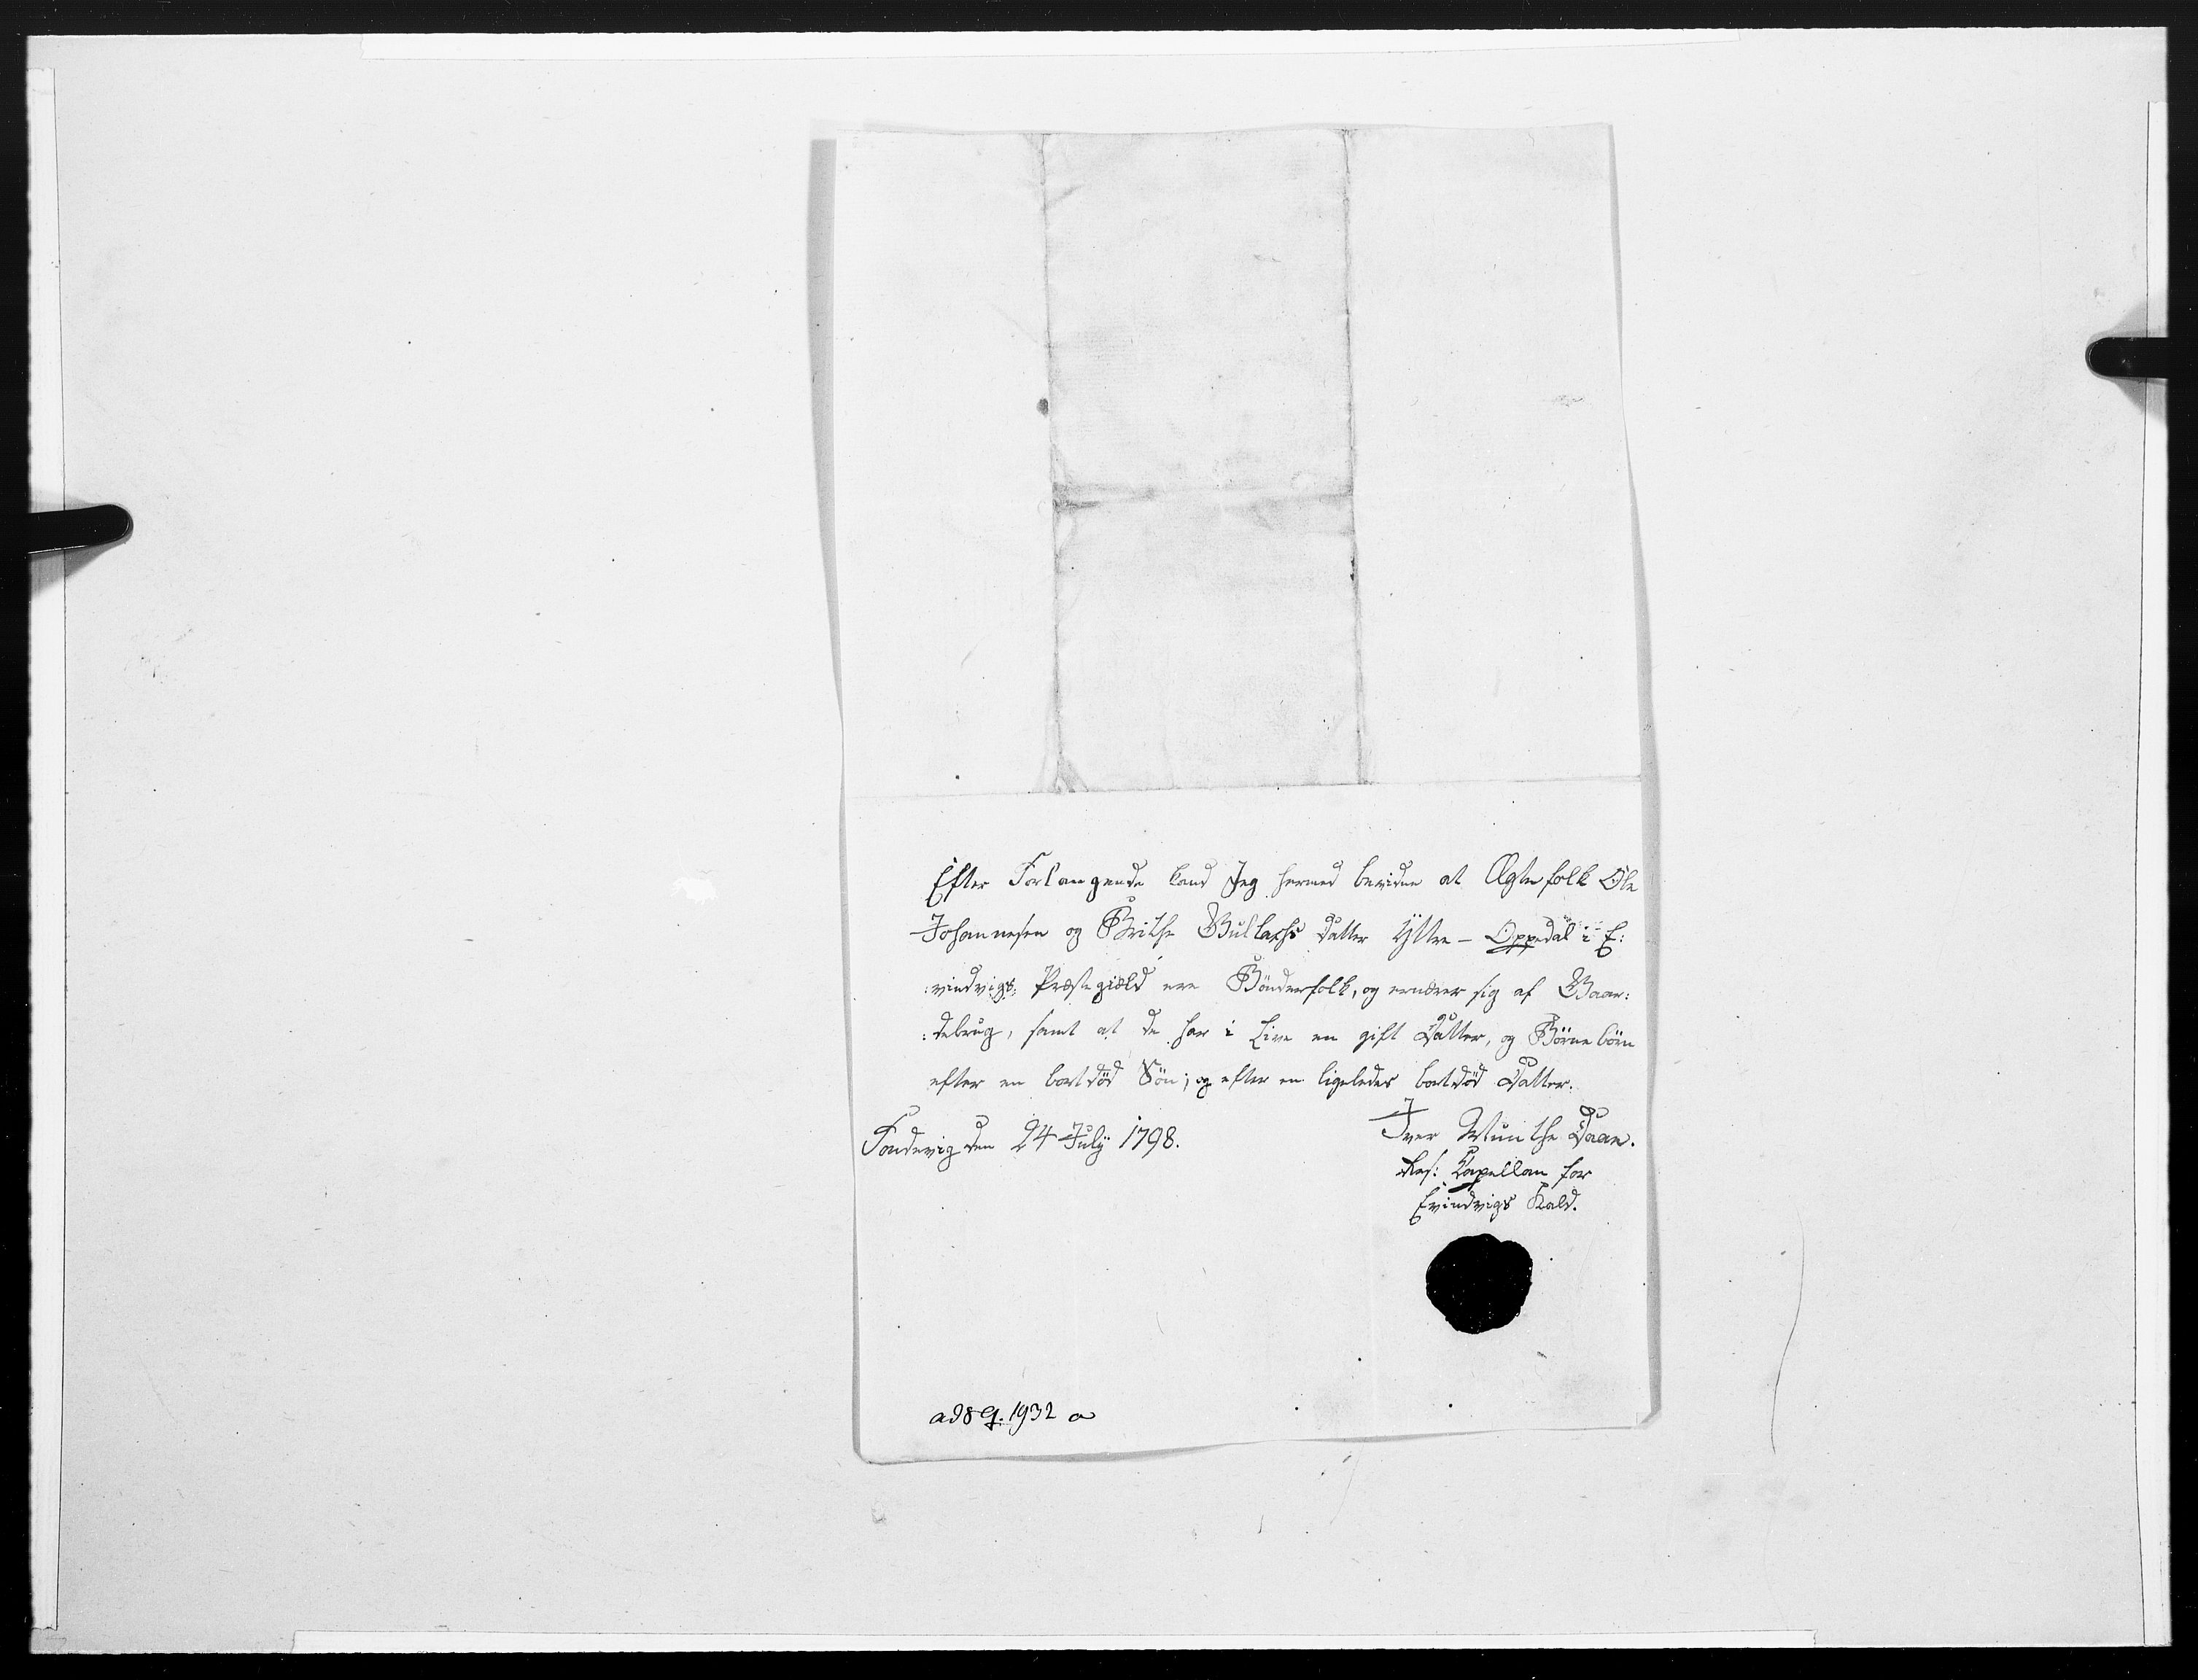 Efter Forlangende land Jeg hermed bevidne at Ægtefolk Ole
Johannesen og Brithe Gullachs datter Yttre - Oppedal i E:
:vindvigs: Præstegiæld ere Bönderfolk, og ernærer sig af Gaar:
:debrug, samt at de har i Live en gift Datter, og Börnebörn
efter en bortdöd Sön; og efter en ligeledes bortdöd Datter.
den 24 July 1798.
Iver Munthe Daae.
Res: Capellan for
Evindvigs Kald.
ad 8 G. 1932 a